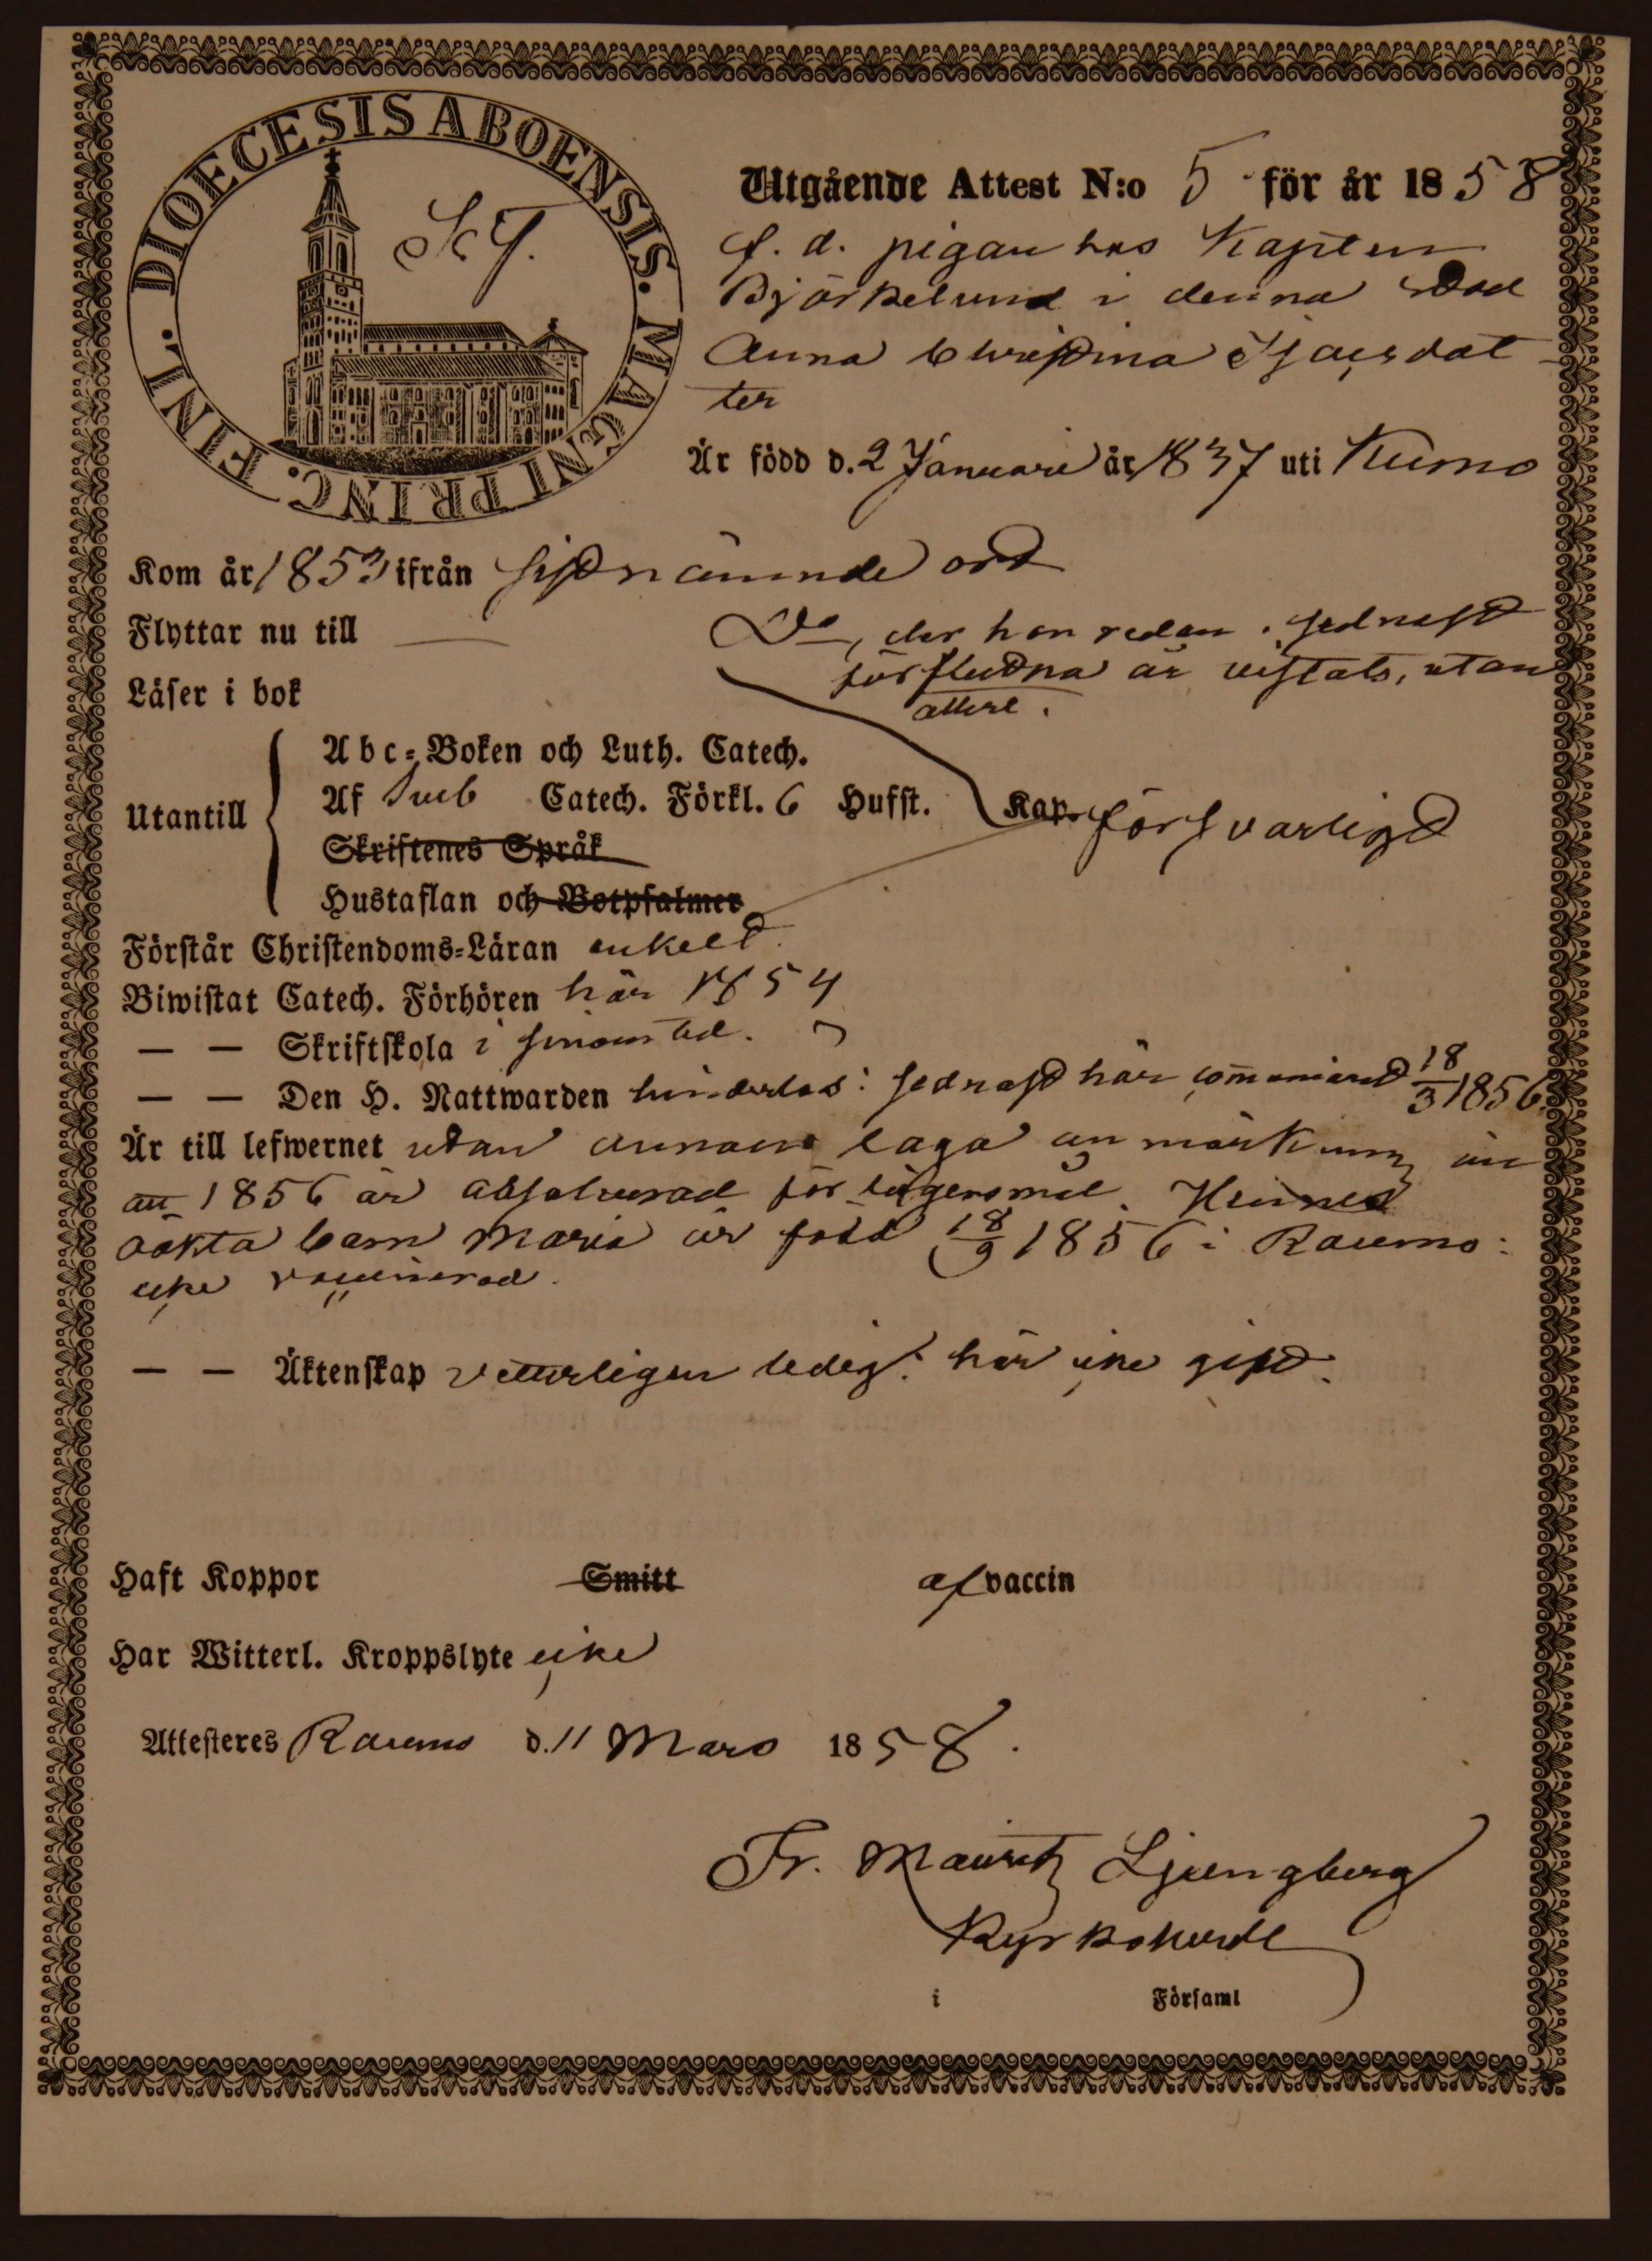 DIOECESIS ABOENSIS. MAGNI PRINC. FINL.
Utgående Attest N:o 5 för år 1858
f. d. pigan hos Kapten
Björkelund i denna stad
Anna Christina
ter
Är född d. 2 Januari år 1837 uti Kumo
Kom år 1853 ifrån sistnämnde ort
Flyttar nu till — Do, der hon redan sednast
förflutna år vistats, utan
attest.
Läser i bok
Utantill
Abc-Boken och Luth. Catech.
Af Sveb Catech. Förkl. 6 Hufst. Kap. försvarligt
Skriftenes Språk
Hustaflan och Botpsalmer
Förstår Christendoms-Läran enkelt
Biwistat Catech. Förhören här 1854
— — Skriftskola i sinom tid.
— — Den H. Nattwarden hinderlös: sednast här communicerat 18/3 1856.
Är till lefwernet utan annan laga anmärkning än
att 1856 är absolverad för lägersmål. Hennes
oäkta barn Maria är född 18/9 1856 i Raumo:
icke vaccinerad.
— — Äktenskap vetterligen ledig: här icke gift.
Haft Koppor Smitt af vaccin
Har Witterl. Kroppslyte icke
Attesteres Raumo d. 11 Mars 1858.
Fr. Mauritz Ljungberg
Kyrkoherde
i Församl